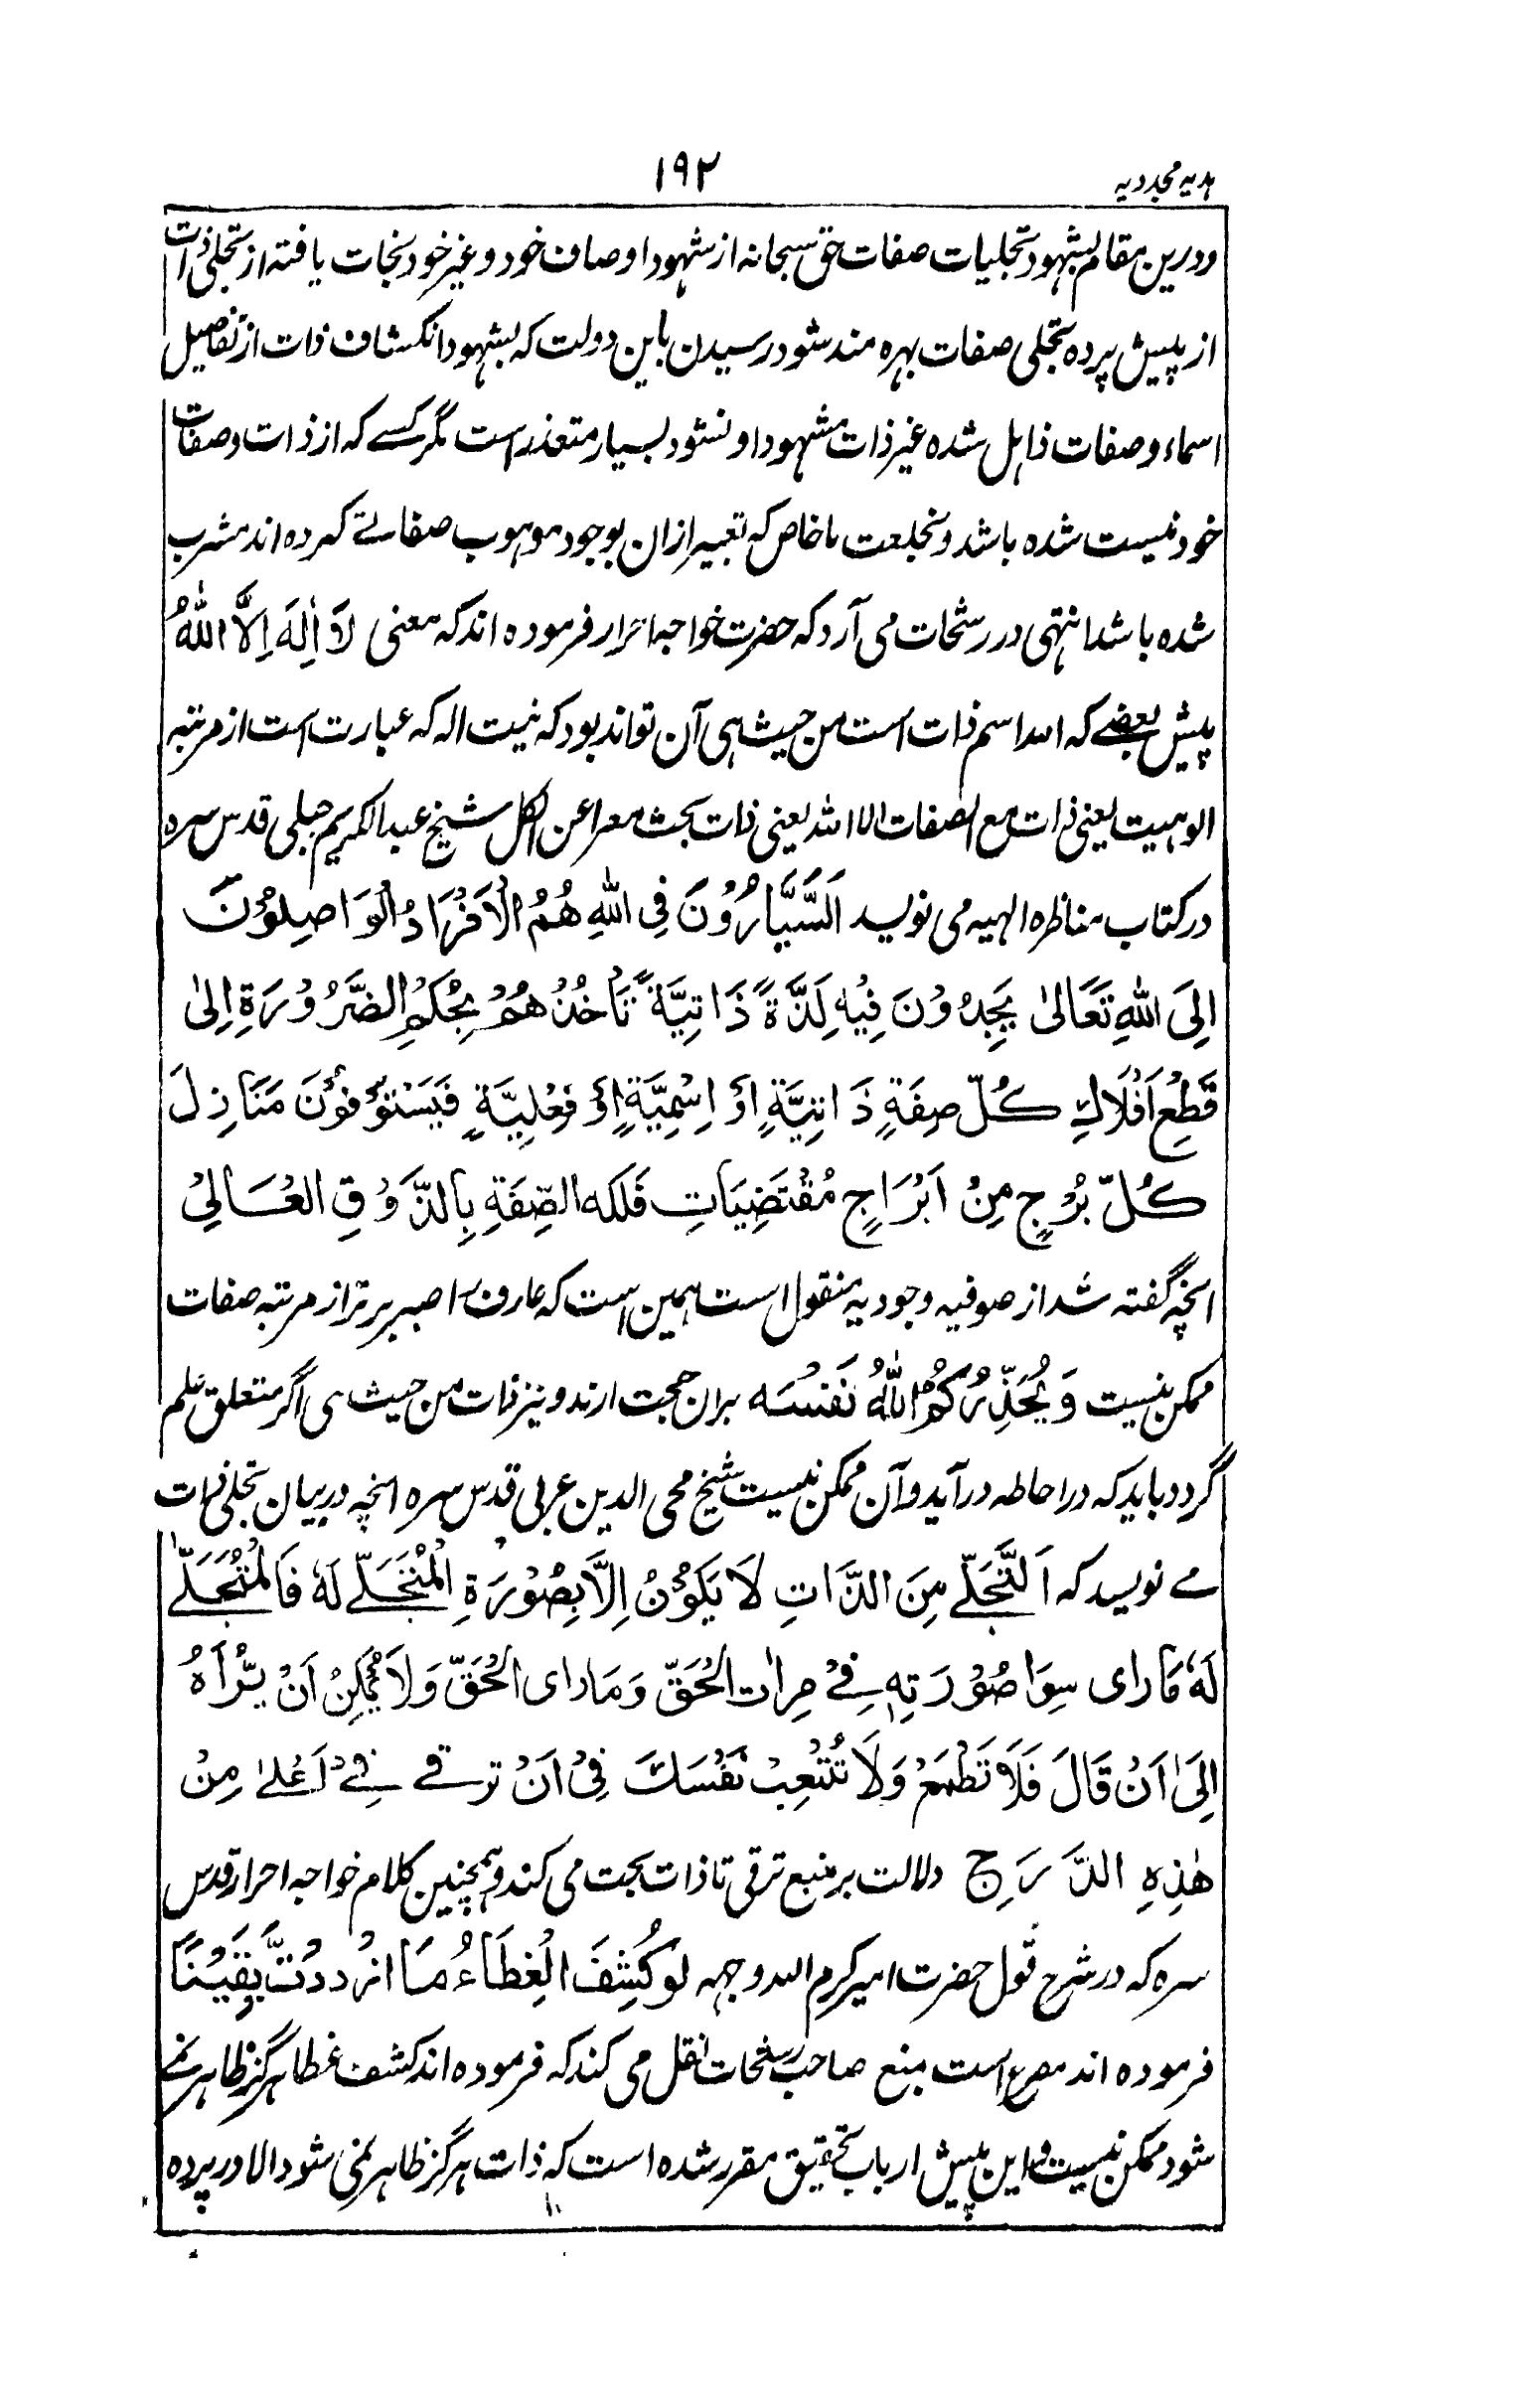 ہدیہ مجددیہ
۱۹۲
ودرین مقام بشہود تجلیات صفات حق سبحانہ از شہود اوصاف خود و غیر خود نجات یافتہ از تجلی ذات
از پیش پردہ تجلی صفات بہرہ مند شود رسیدن باین دولت کہ بشہود انکشاف ذات از تفاصیل
اسماء و صفات ذاہل شدہ غیر ذات مشہود او نشود بسیار متعذر است مگر کسے کہ از ذات و صفات
خود نیست شدہ باشد و بخلعت خاص کہ تعبیر ازان بوجود موہوب صفاتے کردہ اند مشرب
شدہ باشد انتہی در رشحات می آرد کہ حضرت خواجہ احرار فرمودہ اند کہ معنی لَآ اِلٰهَ اِلَّا اللّٰهُ
پیش بعضے کہ اللہ اسم ذات است من حیث ہی آن تواند بود کہ نیست الہ کہ عبارت است از مرتبہ
الوہیت یعنی ذات مع الصفات الا اللہ یعنی ذات بحث معرا عن الکل شیخ عبدالکریم جیلی قدس سرہ
در کتاب مناظرہ الہیہ می نویسد اَلسَّيَّارُوْنَ فِی اللّٰهِ هُمُ الْاَفْرَادُ الْوَاصِلُوْنَ
اِلَی اللّٰهِ تَعَالٰی يَجِدُوْنَ فِيْهِ لَذَّةً ذَاتِيَّةً تَاْخُذُهُمْ بِحُكْمِ الضَّرُوْرَةِ اِلٰی
قَطْعِ اَفْلَاكِ كُلِّ صِفَةٍ ذَاتِيَّةٍ اَوْ اِسْمِيَّةٍ اَوْ فِعْلِيَّةٍ فَيَسْتَوْفُوْنَ مَنَازِلَ
كُلِّ بُرْجٍ مِنْ اَبْرَاجٍ مُقْتَضِيَاتِ فَلَكِه الصِّفَةِ بِالذَّوْقِ الْعَالِيْ
انچہ گفتہ شد از صوفیہ وجودیہ منقول است ہمین است کہ عارف را صبر برتر از مرتبہ صفات
ممکن نیست وَيُحَذِّرُكُمُ اللّٰهُ نَفْسَه بران حجت ارند و نیز ذات من حیث ہی اگر متعلق علم
گردد باید کہ در احاطہ در آید و آن ممکن نیست شیخ محی الدین عربی قدس سرہ انچہ در بیان تجلی ذات
مے نویسد کہ اَلتَّجَلِّے مِنَ الذَّاتِ لَا يَكُوْنُ اِلَّا بِصُوْرَةِ الْمُتَجَلّٰے لَهٗ فَالْمُتَجَلّٰے
لَهٗ مَا رای سِوَا صُوْرَتِهٖ فِے مِرات الْحَقِّ وَمَا رای الْحَقَّ وَلَا يُمْكِنُ اَنْ يَّرَاهُ
اِلٰی اَنْ قَالَ فَلَا تَطْمَعْ وَلَا تُتْعِبْ نَفْسَكَ فِیْ اَنْ ترقے فِے اَعْلٰی مِنْ
هٰذِهِ الدَّرَجِ دلالت بر منع ترقی تا ذات بحت می کند و ہمچنین کلام خواجہ احرار قدس
سرہ کہ در شرح قول حضرت امیر کرم اللہ وجہہ لَوْ كُشِفَ الْغِطَاءُ مَا ازْدَدتُّ يَقِيْنًا
فرمودہ اند مصرح است بمنع صاحب رشحات نقل می کند کہ فرمودہ اند کشف غطا ہرگز ظاہر نمے
شود ممکن نیست و این پیش ارباب تحقیق مقرر شدہ است کہ ذات ہرگز ظاہر نمی شود الا در پردہ